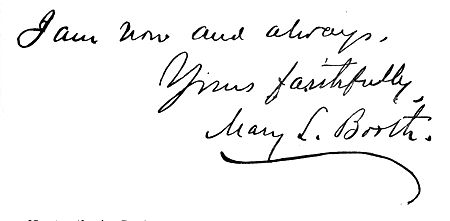 I am now and always,
Yours faithfully,
Mary L. Booth.